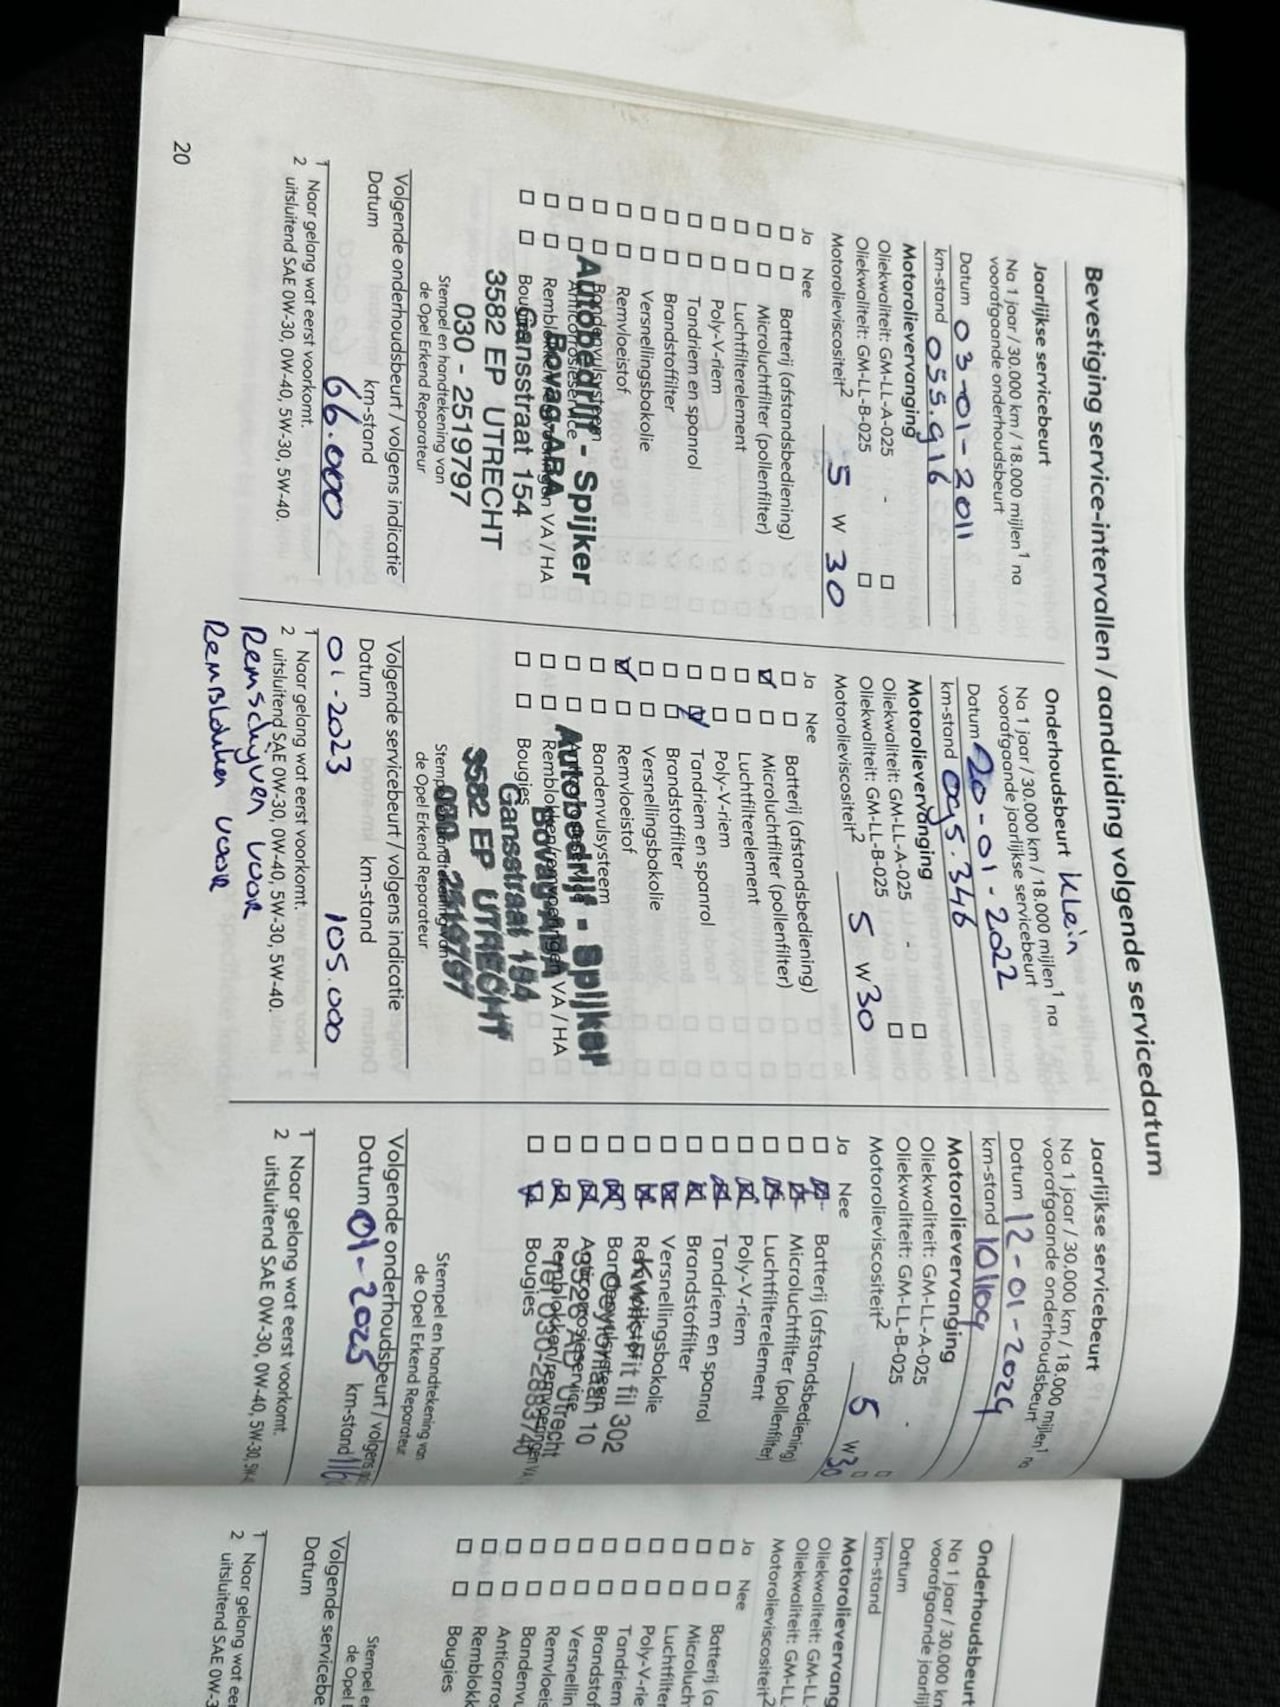 Bevestiging service-intervallen / aanduiding volgende servicedatum
Jaarlijkse servicebeurt
Na 1 jaar / 30.000 km / 18.000 mijlen¹ na
voorafgaande onderhoudsbeurt
Datum 03-01-2011
km-stand 055.916
Motorolievervanging
Oliekwaliteit: GM-LL-A-025 - ☐
Oliekwaliteit: GM-LL-B-025 ☐
Motorolieviscositeit² 5 W 30
Ja Nee
☐ ☐ Batterij (afstandsbediening)
☐ ☐ Microluchtfilter (pollenfilter)
☐ ☐ Luchtfilterelement
☐ ☐ Poly-V-riem
☐ ☐ Tandriem en spanrol
☐ ☐ Brandstoffilter
☐ ☐ Versnellingsbakolie
☐ ☐ Remvloeistof
☐ ☐ Bandenvulsysteem
☐ ☐ Anticorrosieservice
☐ ☐ Remblokken/remvoeringen VA / HA
☐ ☐ Bougies
Autobedrijf - Spijker
Bovag-ABA
Gansstraat 154
3582 EP UTRECHT
030 - 2519797
Stempel en handtekening van
de Opel Erkend Reparateur
Volgende onderhoudsbeurt / volgens indicatie
Datum km-stand
66.000
1 Naar gelang wat eerst voorkomt.
2 uitsluitend SAE 0W-30, 0W-40, 5W-30, 5W-40.
20
Onderhoudsbeurt Klein
Na 1 jaar / 30.000 km / 18.000 mijlen¹ na
voorafgaande jaarlijkse servicebeurt
Datum 20-01-2022
km-stand 095.346
Motorolievervanging
Oliekwaliteit: GM-LL-A-025 - ☐
Oliekwaliteit: GM-LL-B-025 ☐
Motorolieviscositeit² 5 W 30
Ja Nee
☐ ☐ Batterij (afstandsbediening)
☑ ☐ Microluchtfilter (pollenfilter)
☐ ☐ Luchtfilterelement
☐ ☐ Poly-V-riem
☐ ☑ Tandriem en spanrol
☐ ☐ Brandstoffilter
☐ ☐ Versnellingsbakolie
☑ ☐ Remvloeistof
☐ ☐ Bandenvulsysteem
☐ ☐ Anticorrosieservice
☐ ☐ Remblokken/remvoeringen VA / HA
☐ ☐ Bougies
Autobedrijf - Spijker
Bovag-ABA
Gansstraat 154
3582 EP UTRECHT
030-2519797
Stempel en handtekening van
de Opel Erkend Reparateur
Volgende servicebeurt / volgens indicatie
Datum km-stand
01-2023 105.000
1 Naar gelang wat eerst voorkomt.
2 uitsluitend SAE 0W-30, 0W-40, 5W-30, 5W-40.
Remschijven voor
Remblokken voor
Jaarlijkse servicebeurt
Na 1 jaar / 30.000 km / 18.000 mijlen¹ na
voorafgaande onderhoudsbeurt
Datum 12-01-2024
km-stand 101109
Motorolievervanging
Oliekwaliteit: GM-LL-A-025 - ☐
Oliekwaliteit: GM-LL-B-025 ☐
Motorolieviscositeit² 5 W 30
Ja Nee
☐ ☒ Batterij (afstandsbediening)
☐ ☒ Microluchtfilter (pollenfilter)
☐ ☒ Luchtfilterelement
☐ ☒ Poly-V-riem
☐ ☒ Tandriem en spanrol
☐ ☒ Brandstoffilter
☐ ☒ Versnellingsbakolie
☐ ☒ Remvloeistof
☐ ☒ Bandenvulsysteem
☐ ☒ Anticorrosieservice
☐ ☒ Remblokken/remvoeringen VA
☐ ☒ Bougies
KwikFit fil 302
Ceylonlaan 10
3526 AD Utrecht
Tel 030-2883740
Stempel en handtekening van
de Opel Erkend Reparateur
Volgende onderhoudsbeurt / volgens
Datum 01-2025 km-stand 116
1 Naar gelang wat eerst voorkomt.
2 uitsluitend SAE 0W-30, 0W-40, 5W-30, 5W-4
Onderhoudsbeurt
Na 1 jaar / 30.000 km
voorafgaande jaarlij
Datum
km-stand
Motorolievervang
Oliekwaliteit: GM-LL-
Oliekwaliteit: GM-LL
Motorolieviscositeit²
Ja Nee
☐ ☐ Batterij (a
☐ ☐ Microluch
☐ ☐ Luchtfilter
☐ ☐ Poly-V-rie
☐ ☐ Tandriem
☐ ☐ Brandstof
☐ ☐ Versnellin
☐ ☐ Remvloeis
☐ ☐ Bandenvu
☐ ☐ Anticorros
☐ ☐ Remblokk
☐ ☐ Bougies
Stempel e
de Opel
Volgende servicebe
Datum
1 Naar gelang wat eer
2 uitsluitend SAE 0W-3